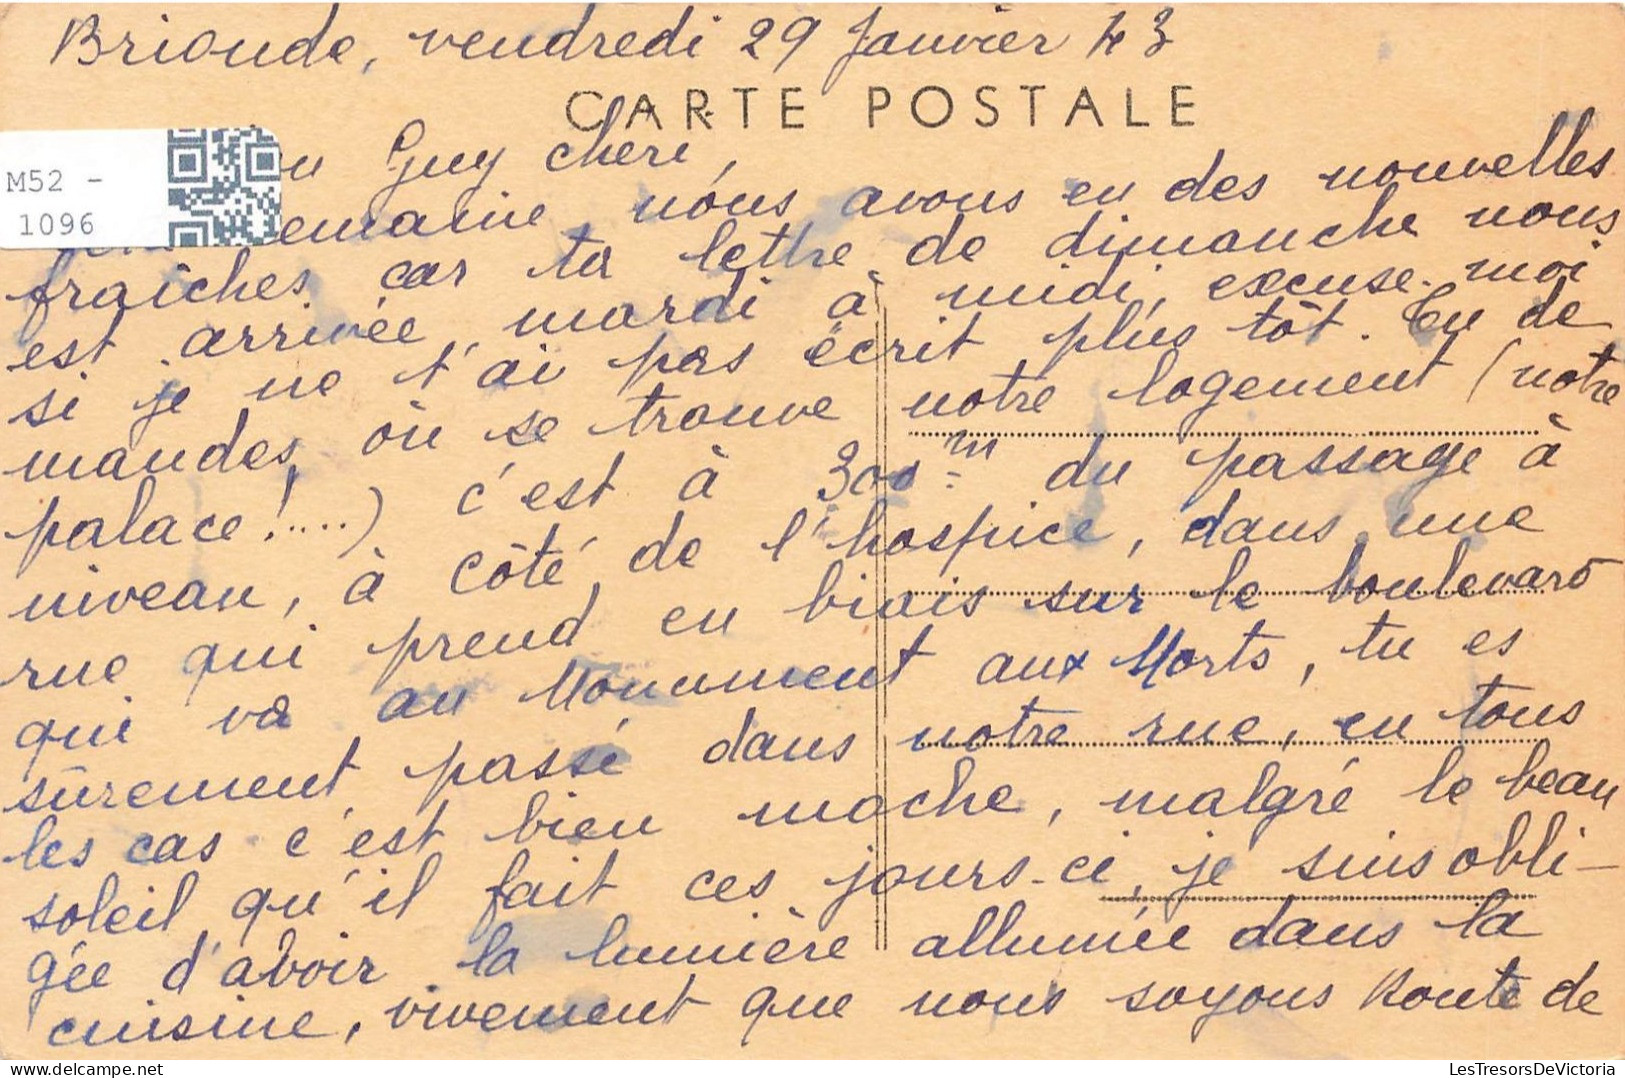 Brioude, vendredi 29 Janvier 43
CARTE POSTALE
Guy chéri,
M52 -
1096
semaine, nous avons eu des nouvelles
fraîches car ta lettre de dimanche nous
est arrivée mardi à midi, excuse-moi
si je ne t'ai pas écrit plus tôt. Tu de
mandes où se trouve notre logement (notre
palace!....) c'est à 300m du passage à
niveau, à côté de l'hospice, dans une
rue qui prend en biais sur le boulevard
qui va au Monument aux Morts, tu es
sûrement passé dans notre rue, en tous
les cas c'est bien moche, malgré le beau
soleil qu'il fait ces jours-ci, je suis obli-
gée d'avoir la lumière allumée dans la
cuisine, vivement que nous soyons Route de
LesTresorsDeVictoria